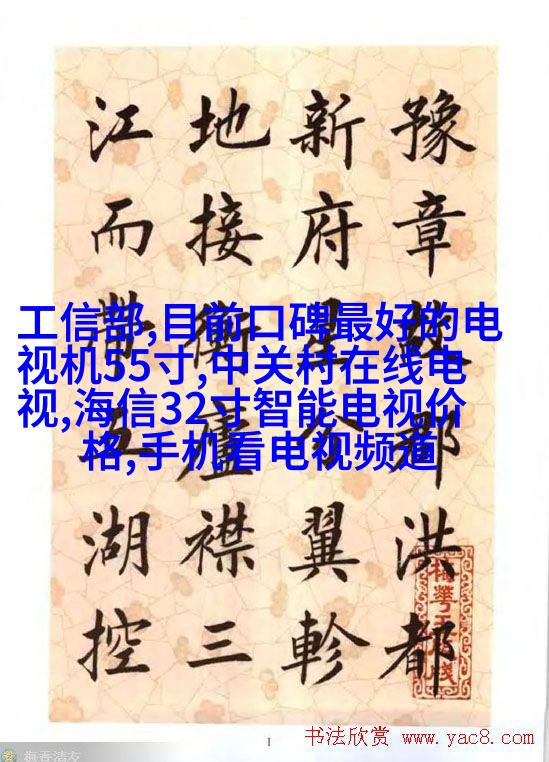 豫章故郡洪都
新府星分翼軫
地接衡廬襟三
江而帶五湖控
工信部,目前口碑最好的电
视机55寸,中关村在线电
视,海信32寸智能电视价
格,手机看电视频道
1
书法欣赏 www.yac8.com